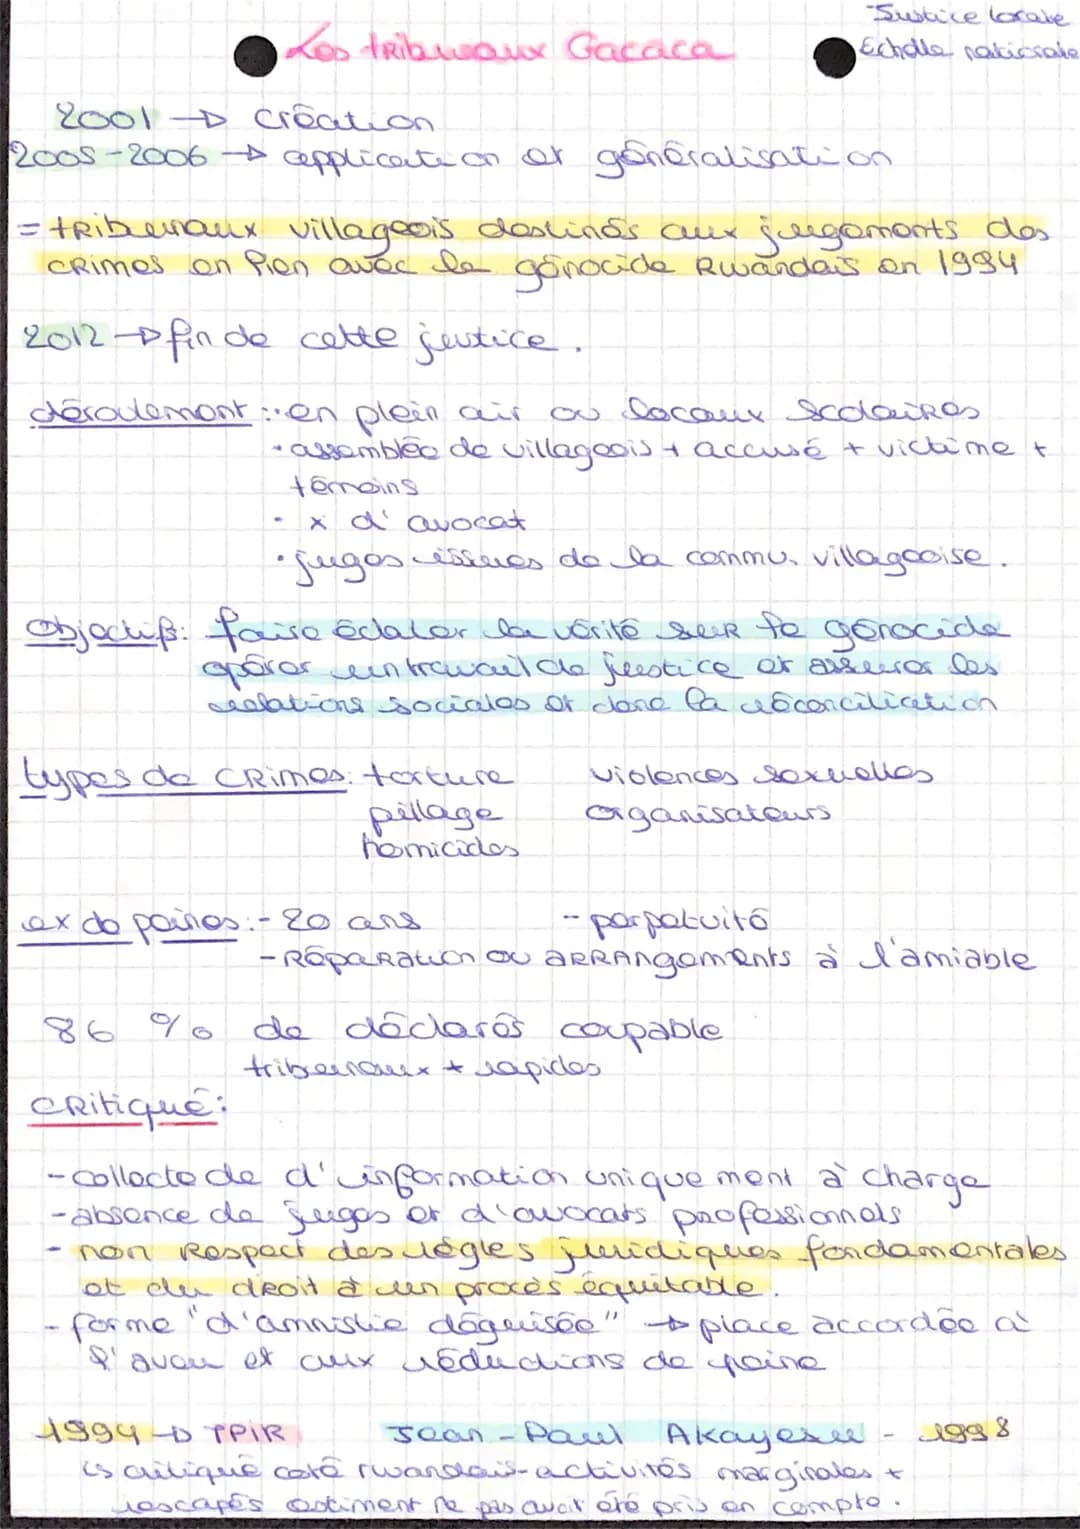 - Justice locale
Echelle nationale
Les tribunaux Gacaca
2001 → création
2005-2006 → application et généralisation
= tribunaux villageois destinés aux jugements des
crimes en lien avec le génocide Rwandais en 1994
2012 → fin de cette justice.
déroulement : · en plein air ou locaux scolaires
· assemblée de villageois + accusé + victime +
témoins
- x d'avocat
· juges issues de la commu. villageoise.
Objectifs: faire éclater la vérité sur le génocide
opérer un travail de justice et assurer les
relations sociales et donc la réconciliation
types de crimes: torture violences sexuelles
pillage organisateurs
homicides
ex de peines: - 20 ans - perpétuité
- Réparation ou arrangements à l'amiable
86 % de déclarés coupable
tribunaux + rapides
Critiqué:
- collecte de d'information uniquement à charge
- absence de juges et d'avocats professionnels
- non Respect des règles juridiques fondamentales
et du droit à un procès équitable.
- forme "d'amnistie déguisée" → place accordée à
l'aveu et aux réductions de peine
1994 → TPIR Jean-Paul Akayesu - 1998
↳ critiqué coté rwandais - activités marginales +
rescapés estiment ne pas avoir été pris en compte.